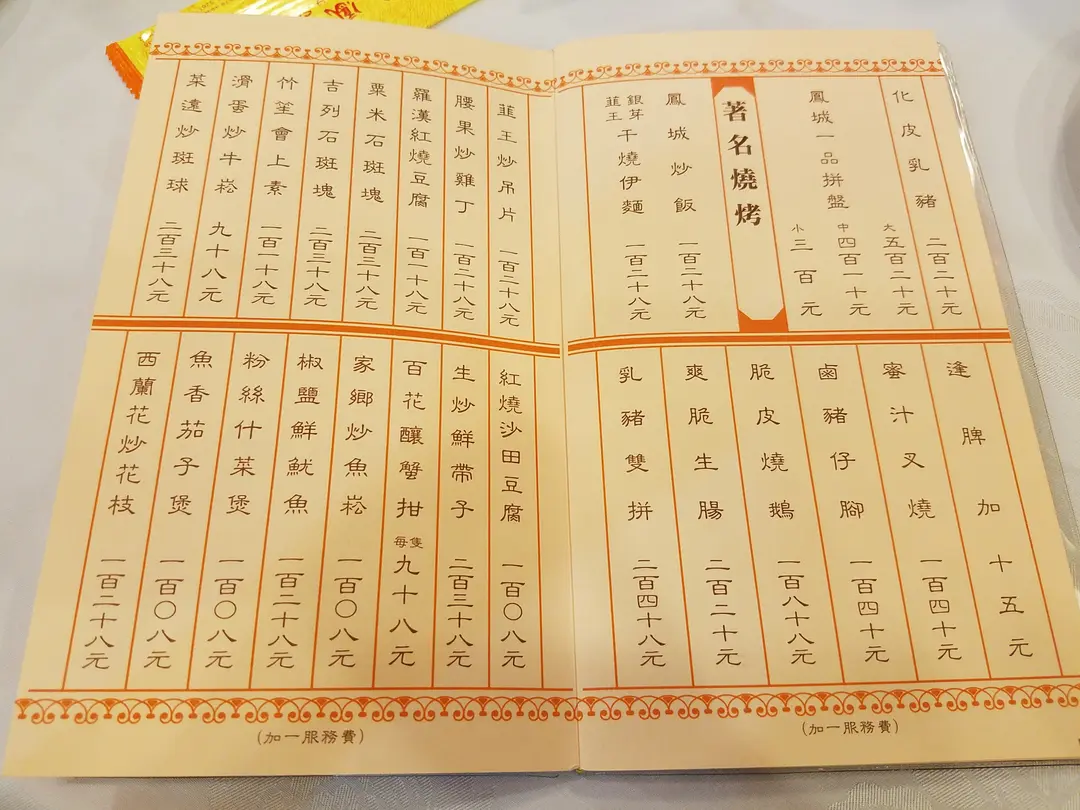 化皮乳豬 二百二十元
鳳城一品拼盤 大五百二十元 中四百一十元 小三百元
著名燒烤
鳳城炒飯 一百二十八元
銀芽韮王干燒伊麵 一百二十八元
逢脾加十五元
蜜汁叉燒 一百四十元
鹵豬仔腳 一百四十元
脆皮燒鵝 一百八十八元
爽脆生腸 二百二十元
乳豬雙拼 二百四十八元
(加一服務費)
韮王炒吊片 一百二十八元
腰果炒雞丁 一百二十八元
羅漢紅燒豆腐 一百一十八元
粟米石斑塊 二百三十八元
吉列石斑塊 二百三十八元
竹笙會上素 一百一十八元
滑蛋炒牛崧 九十八元
菜遠炒斑球 二百三十八元
紅燒沙田豆腐 一百〇八元
生炒鮮帶子 二百三十八元
百花釀蟹拑 每隻九十八元
家鄉炒魚崧 一百〇八元
椒鹽鮮魷魚 一百二十八元
粉絲什菜煲 一百〇八元
魚香茄子煲 一百〇八元
西蘭花炒花枝 一百二十八元
(加一服務費)